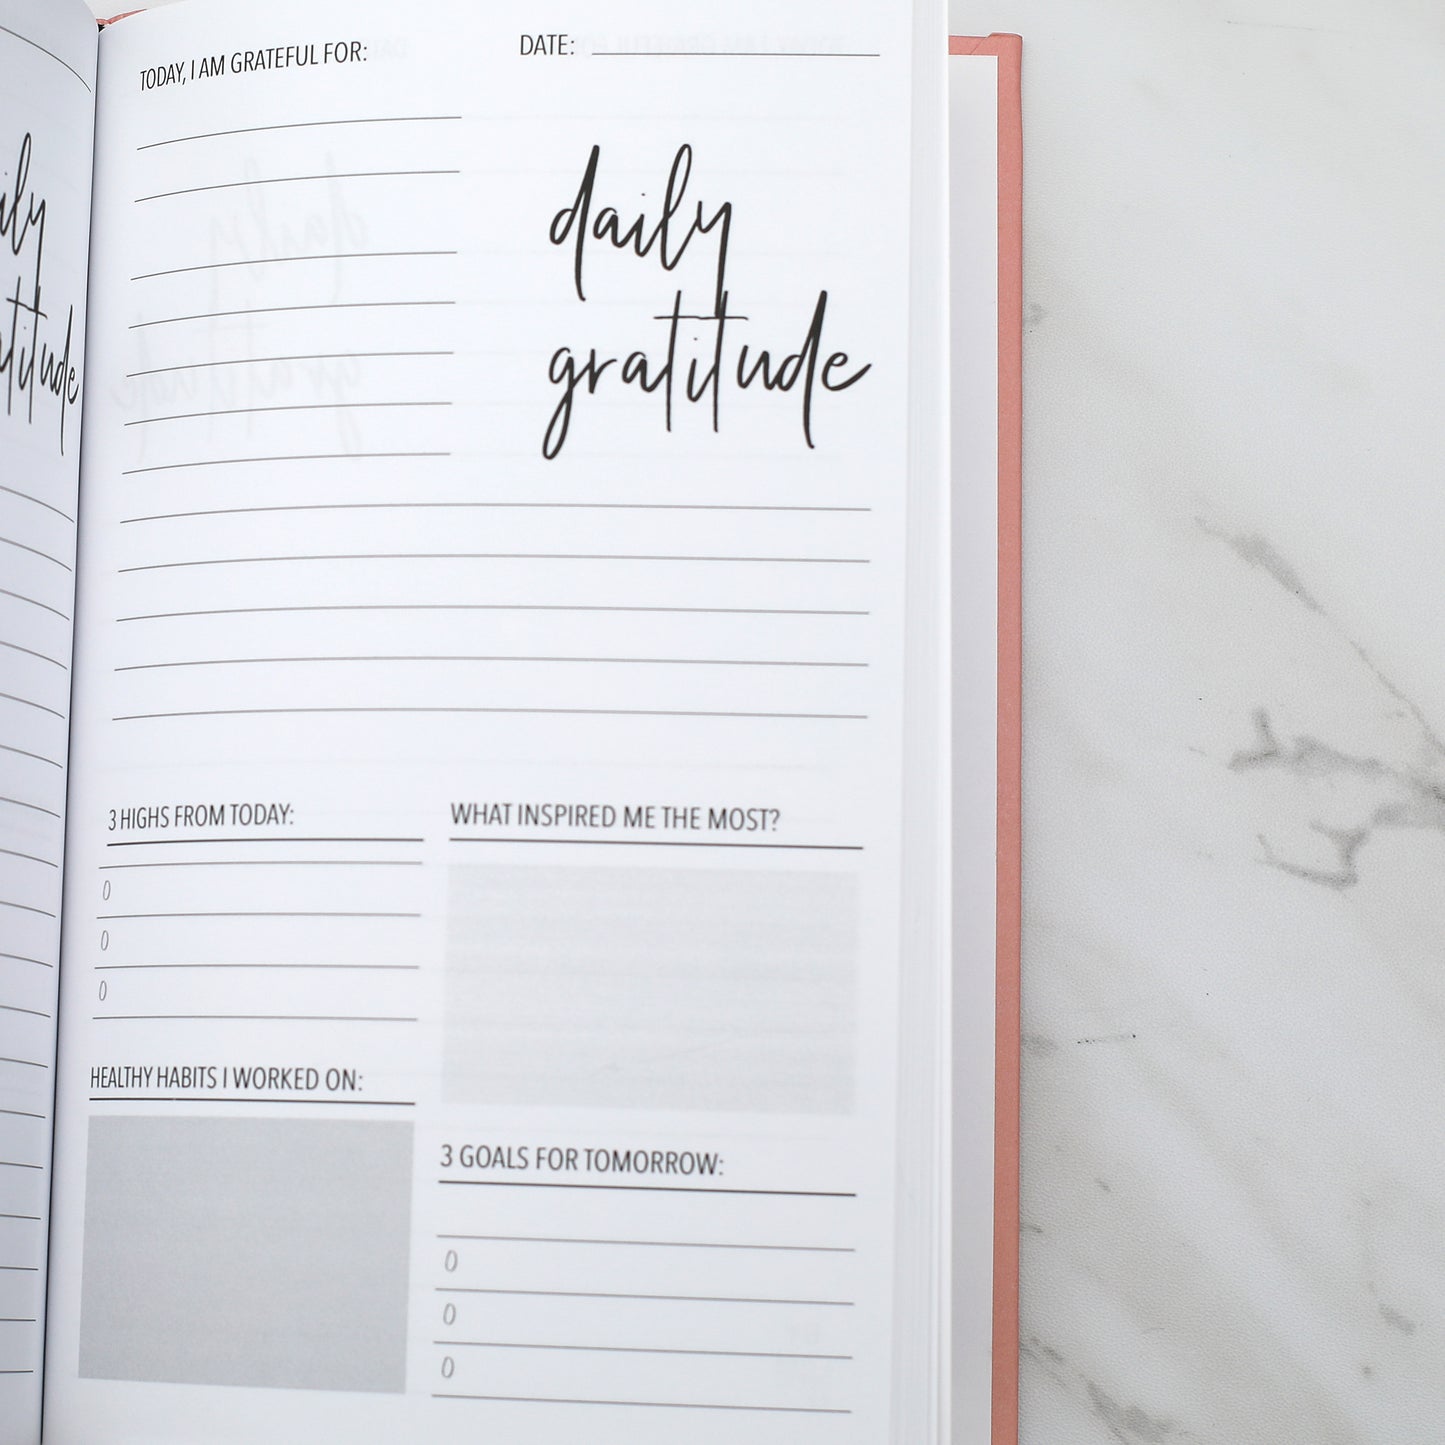 TODAY, I AM GRATEFUL FOR:
DATE:
daily
gratitude
3 HIGHS FROM TODAY:
0
0
0
WHAT INSPIRED ME THE MOST?
HEALTHY HABITS I WORKED ON:
3 GOALS FOR TOMORROW:
0
0
0